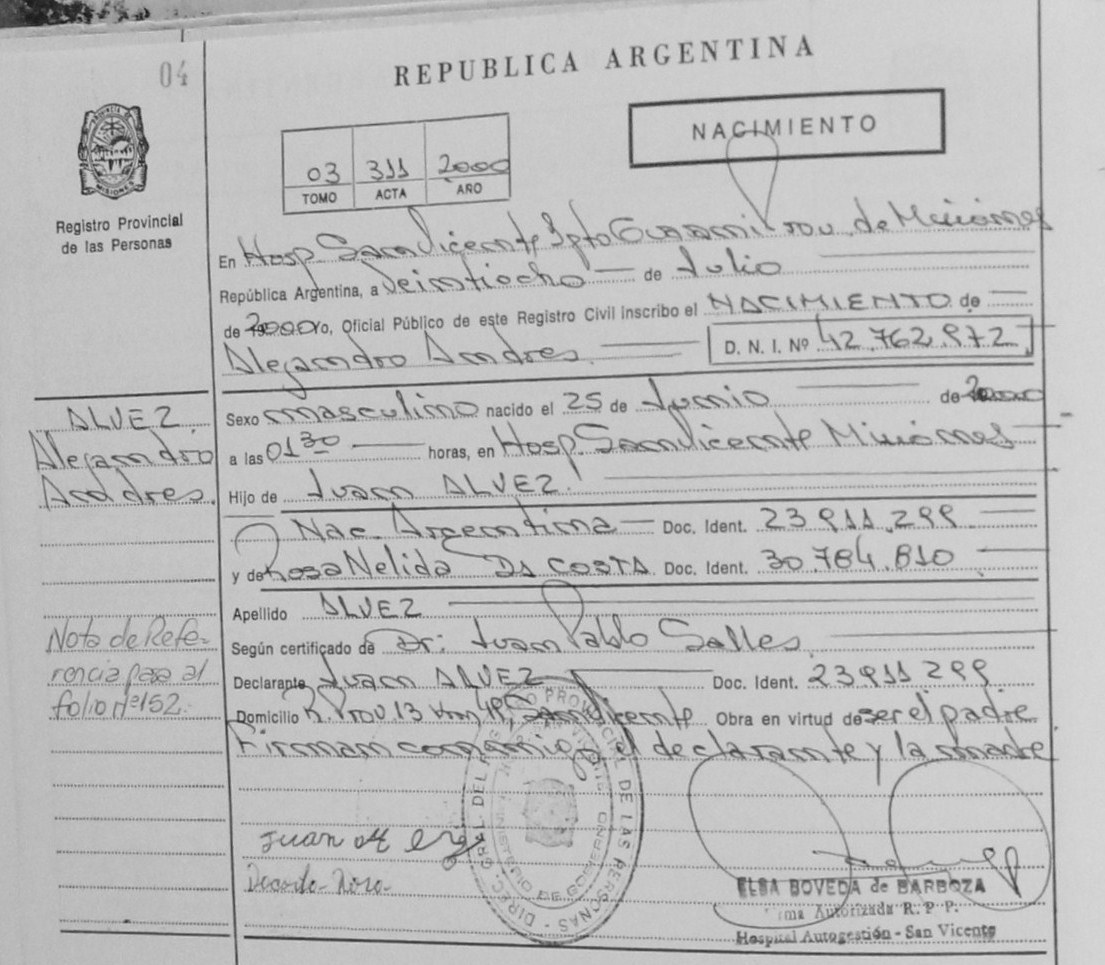 04
REPUBLICA ARGENTINA
PROVINCIA DE
MISIONES
Registro Provincial
de las Personas
NACIMIENTO
03 311 2000
TOMO ACTA AÑO
En Hosp. San Vicente Dpto Guarani Prov. de Misiones
República Argentina, a Veintiocho de Julio
de 2000 Yo, Oficial Público de este Registro Civil inscribo el NACIMIENTO de
Alejandro Andres. D. N. I. Nº 42.762.972
ALVEZ
Alejandro
Andres.
Sexo masculino nacido el 25 de Junio de 2000
a las 01 30 horas, en Hosp. San Vicente Misiones
Hijo de Juan ALVEZ
Nac. Argentina Doc. Ident. 23 911.299
y de Rosa Nelida DA COSTA Doc. Ident. 30.784.810
Apellido ALVEZ
Según certificado de Dr. Juan Pablo Salles
Declarante Juan ALVEZ Doc. Ident. 23 911 299
Domicilio R. Prov 13 Km 48, San Vicente Obra en virtud de ser el padre
Firman conmigo el declarante y la madre
Nota de Refe-
rencia pasa al
folio nº 152.
DIREC. GRAL. DEL REGISTRO PROVINCIAL DE LAS PERSONAS
MINISTERIO DE GOBIERNO
Juan
Dacosta
ELSA BOVEDA de BARBOZA
Firma Autorizada R. P. P.
Hospital Autogestión - San Vicente